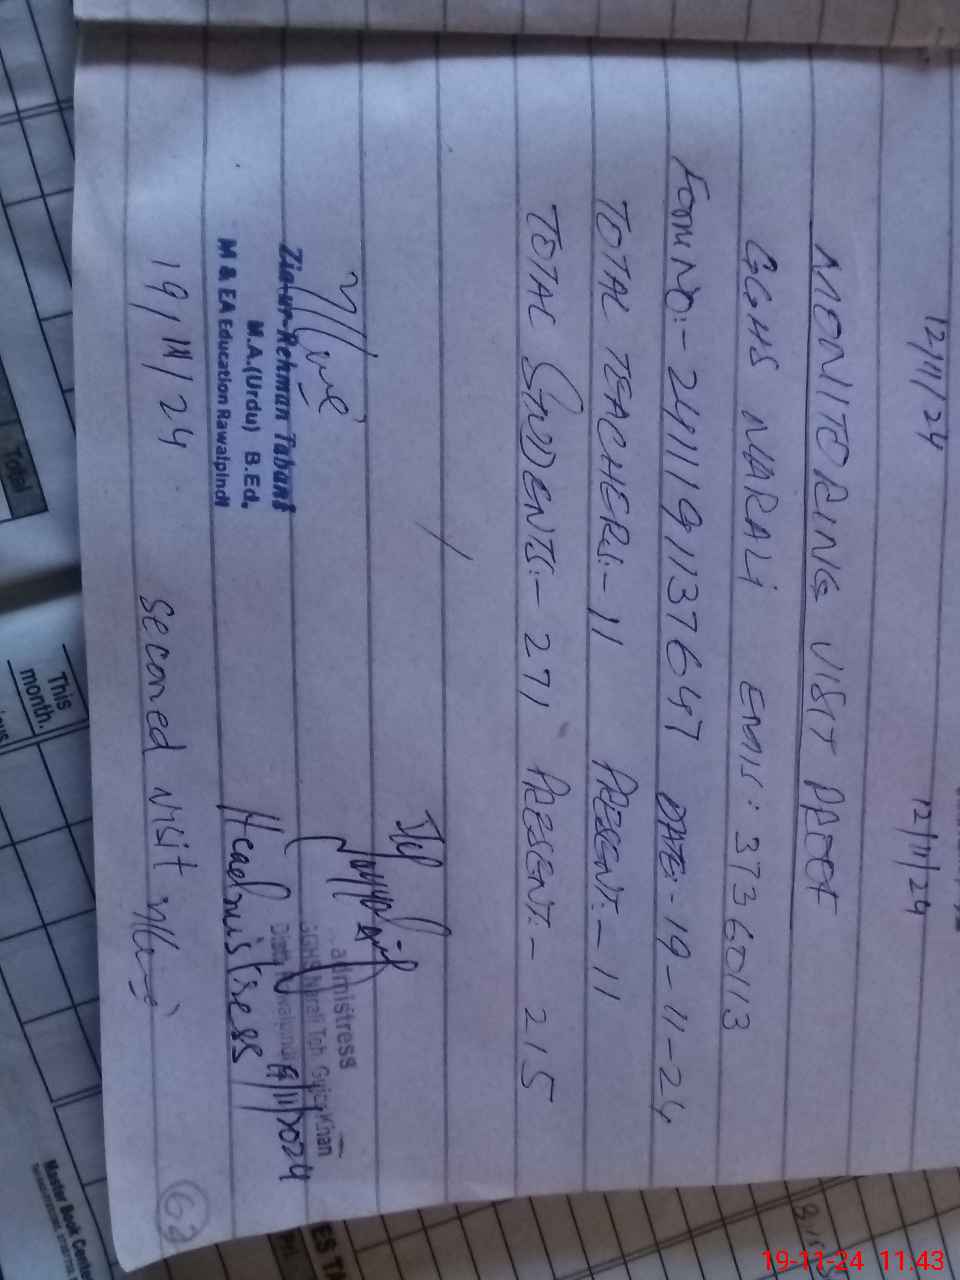 12/11/24 12/11/24
MONITORING VISIT PROOF
GGHS NARALI EMIS: 37360113
FORM NO:- 2411191137647 DATE:- 19-11-24
TOTAL TEACHERS:- 11 PRESENT:- 11
TOTAL STUDENTS:- 271 PRESENT:- 215
Zia-ur-Rehman Tabani
M.A.(Urdu) B.Ed.
M & EA Education Rawalpindi
19/11/24
admistress
GGHS Narali Teh Gujar Khan
Distt Rawalpindi
19/11/2024
Headmistress
Seconed visit
62
Total
This
month.
Master Book Center
ES TA
19-11-24 11.43